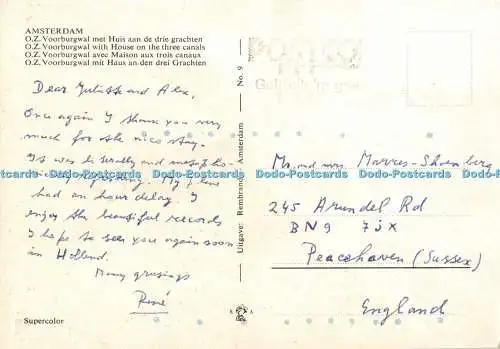 AMSTERDAM
O.Z. Voorburgwal met Huis aan de drie grachten
O.Z. Voorburgwal with House on the three canals
O.Z. Voorburgwal avec Maison aux trois canaux
O.Z. Voorburgwal mit Haus an den drei Grachten
Dear and Alex,
Once again I thank you very
much for the nice stay.
It was literally and
My plane
had an hour delay. I
enjoy the beautiful records
I hope to see you again soon
in Holland.
Many greetings
René
Supercolor
No. 9
Uitgave: Rembrandt Amsterdam
Mr. and mrs.
245 Arundel Rd
BN9 7JX
Peacehaven (Sussex)
England
Dodo-Postcards Dodo-Postcards Dodo-Postcards Dodo-Postcards Dodo-Postcards